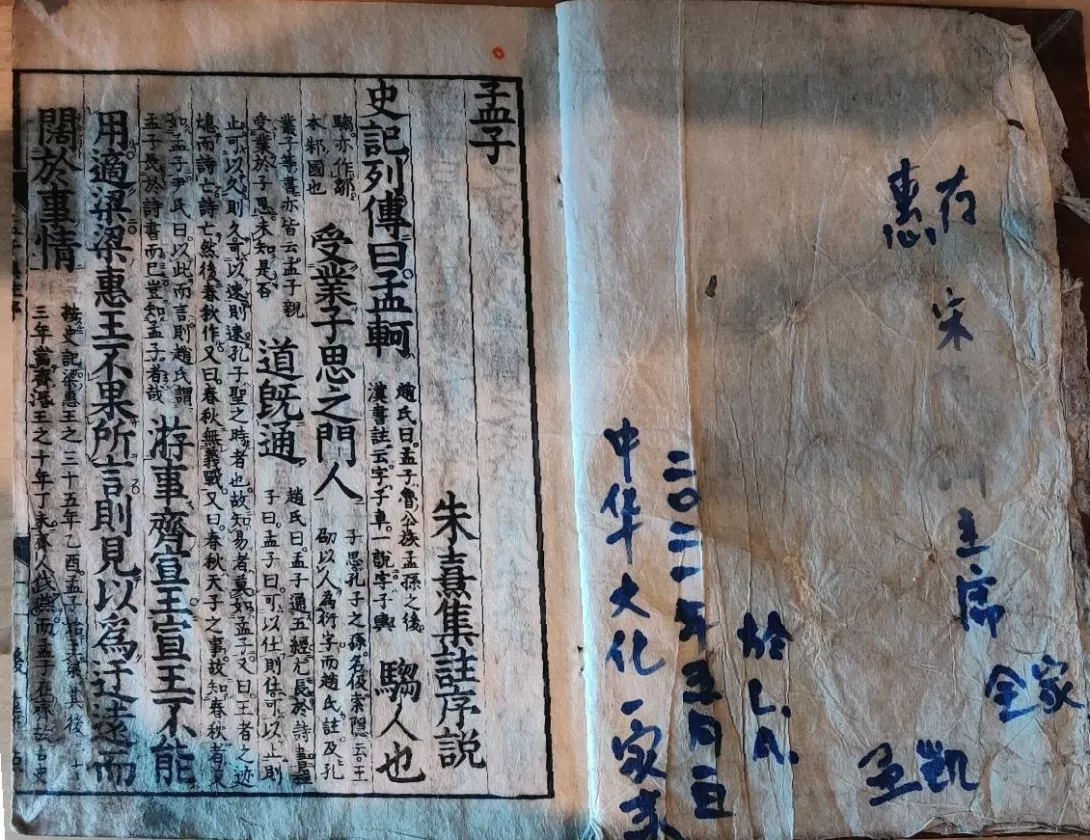 惠存
宋
主席
全家
孟凱
於 L.A.
二〇二一年五月
中华文化一家
孟子
朱熹集註序説
史記列傳曰孟軻
趙氏曰孟子魯公族孟孫之後
漢書註云字子車一說字子輿
騶人也
騶亦作鄒
本邾國也
受業子思之門人
子思孔子之孫名伋索隱云王
劭以人為衍字而趙氏註及孔
叢子等書亦皆云孟子親
受業於子思未知是否
道既通
趙氏曰孟子通五經尤長於詩書程
子曰孟子曰可以仕則仕可以止則
止可以久則久可以速則速孔子聖之時者也故知易者莫如孟子又曰王者之迹
熄而詩亡詩亡然後春秋作又曰春秋無義戰又曰春秋天子之事故知春秋者莫
如孟子尹氏曰以此而言則趙氏謂
孟子長於詩書而已豈知孟子者哉
游事齊宣王宣王不能
用適梁梁惠王不果所言則見以為迂遠而
闊於事情
按史記梁惠王之三十五年乙酉孟子始至梁其後二十
三年當齊湣王之十年丁未齊人伐燕而孟子在齊故古史